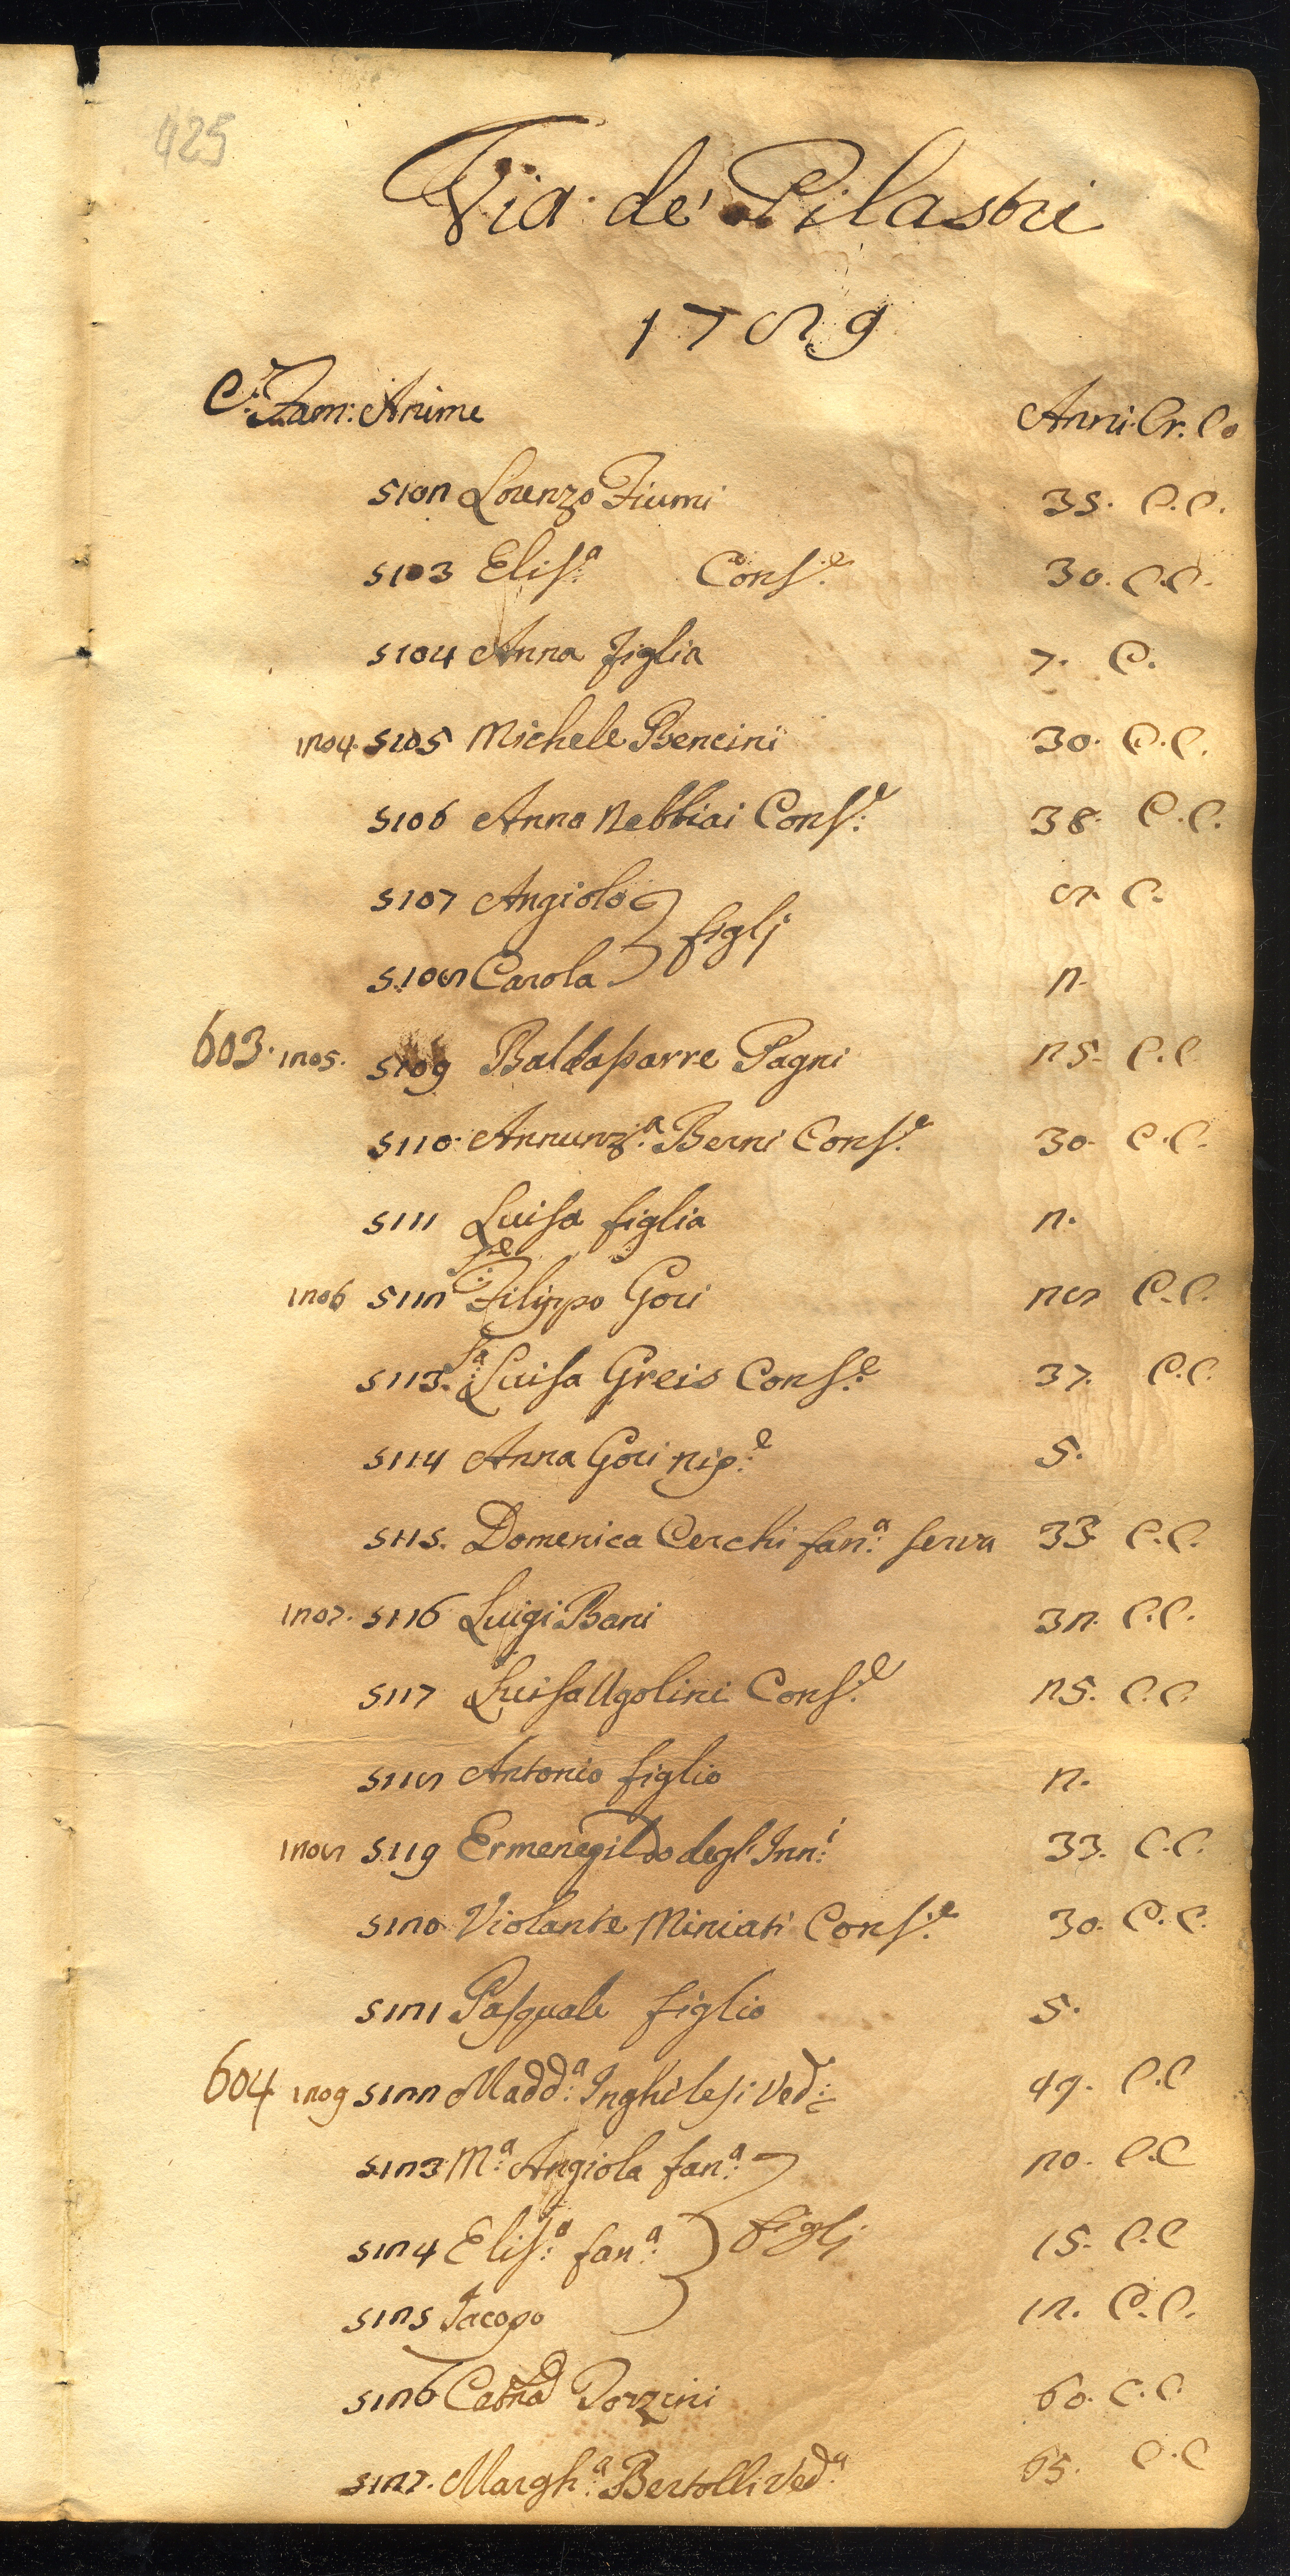 425
Via de' Pilastri
1789
C. Fam: Anime Anni. Cr. Co
5102 Lorenzo Fiumi 35. C.C.
5103 Elis.a Cons.e 30. C.C.
5104 Anna figlia 7. C.
1204. 5105 Michele Bencini 30. C.C.
5106 Anna Nebbiai Cons.e 38. C.C.
5107 Angiolo 8. C.
figlj
5108 Carola 2.
603. 1205. 5109 Baldassarre Pagni 25. C.C
5110. Annunz.a Berni Cons.e 30. C.C.
5111 Luisa figlia 2.
1206 5112 S.e Filippo Gori 28 C.C.
5113. S.a Luisa Greis Cons.e 37. C.C.
5114 Anna Gori nip.e 5.
5115. Domenica Cerchi fan.a serva 33 C.C.
1207. 5116 Luigi Bani 32. C.C.
5117 Luisa Ugolini Cons.e 25. C.C.
5118 Antonio figlio 2.
1208 5119 Ermenegildo degl'Inn.i 33. C.C.
5120 Violante Miniati Cons.e 30. C.C.
5121 Pasquale figlio 5.
604 1209 5122 Madd.a Inghilesi Ved. 49. C.C
5123 M.a Angiola fan.a 20. C.C
5124 Elis.a fan.a figlj 15. C.C
5125 Jacopo 12. C.C.
5126 Catna Torzini 60. C.C.
5127. Margh.a Bertolli Ved.a 65. C.C